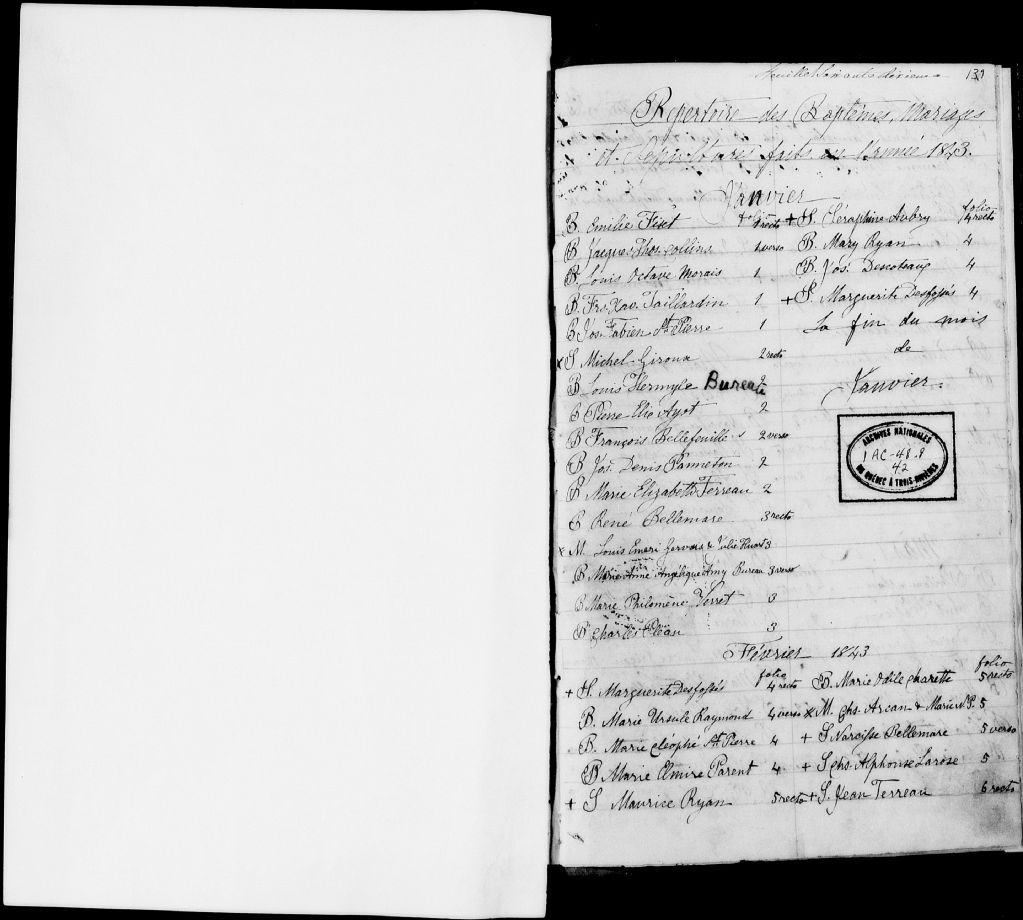 Feuillet soixante dixième 139
Répertoire des Baptêmes, Mariages
et Sépultures faits en l'année 1843.
Janvier
B. Emilie Fiset folio 1 recto
B Jacques Thos. Collins 1 verso
B. Louis Octave Morais 1
B. Frs. Xav. Taillardin 1
B Jos. Fabien St Pierre 1
x S Michel Giroux 2 recto
B Louis Hermyle Bureau 2
B Pierre Elie Ayot 2
B François Bellefeuille 2 verso
B Jos. Denis Panneton 2
B Marie Elizabeth Terreau 2
B René Bellemare 3 recto
x M. Louis Emeri Gervais & Julie Huart 3
B Marie Anne Angélique Amy Bureau 3 verso
B Marie Philomène Verret 3
B Charles Pléau 3
+ S. Séraphine Aubry folio 4 recto
B. Mary Ryan 4
B. Jos. Descoteaux 4
+ S. Marguerite Desfossés 4
La fin du mois
de
Janvier.
ARCHIVES NATIONALES
1 AC-48.8
42
DU QUÉBEC À TROIS-RIVIÈRES
Février 1843
+ S. Marguerite Desfossés folio 4 recto
B. Marie Ursule Raymond 4 verso
B. Marie Cléophé St Pierre 4
B Marie Elmire Parent 4
+ S Maurice Ryan 5 recto
B. Marie Odile Charette folio 5 recto
x M. Chs. Arcan & Marie 5
+ S Narcisse Bellemare 5 verso
+ S Chs. Alphonse Larose 5
+ S. Jean Terreau 6 recto